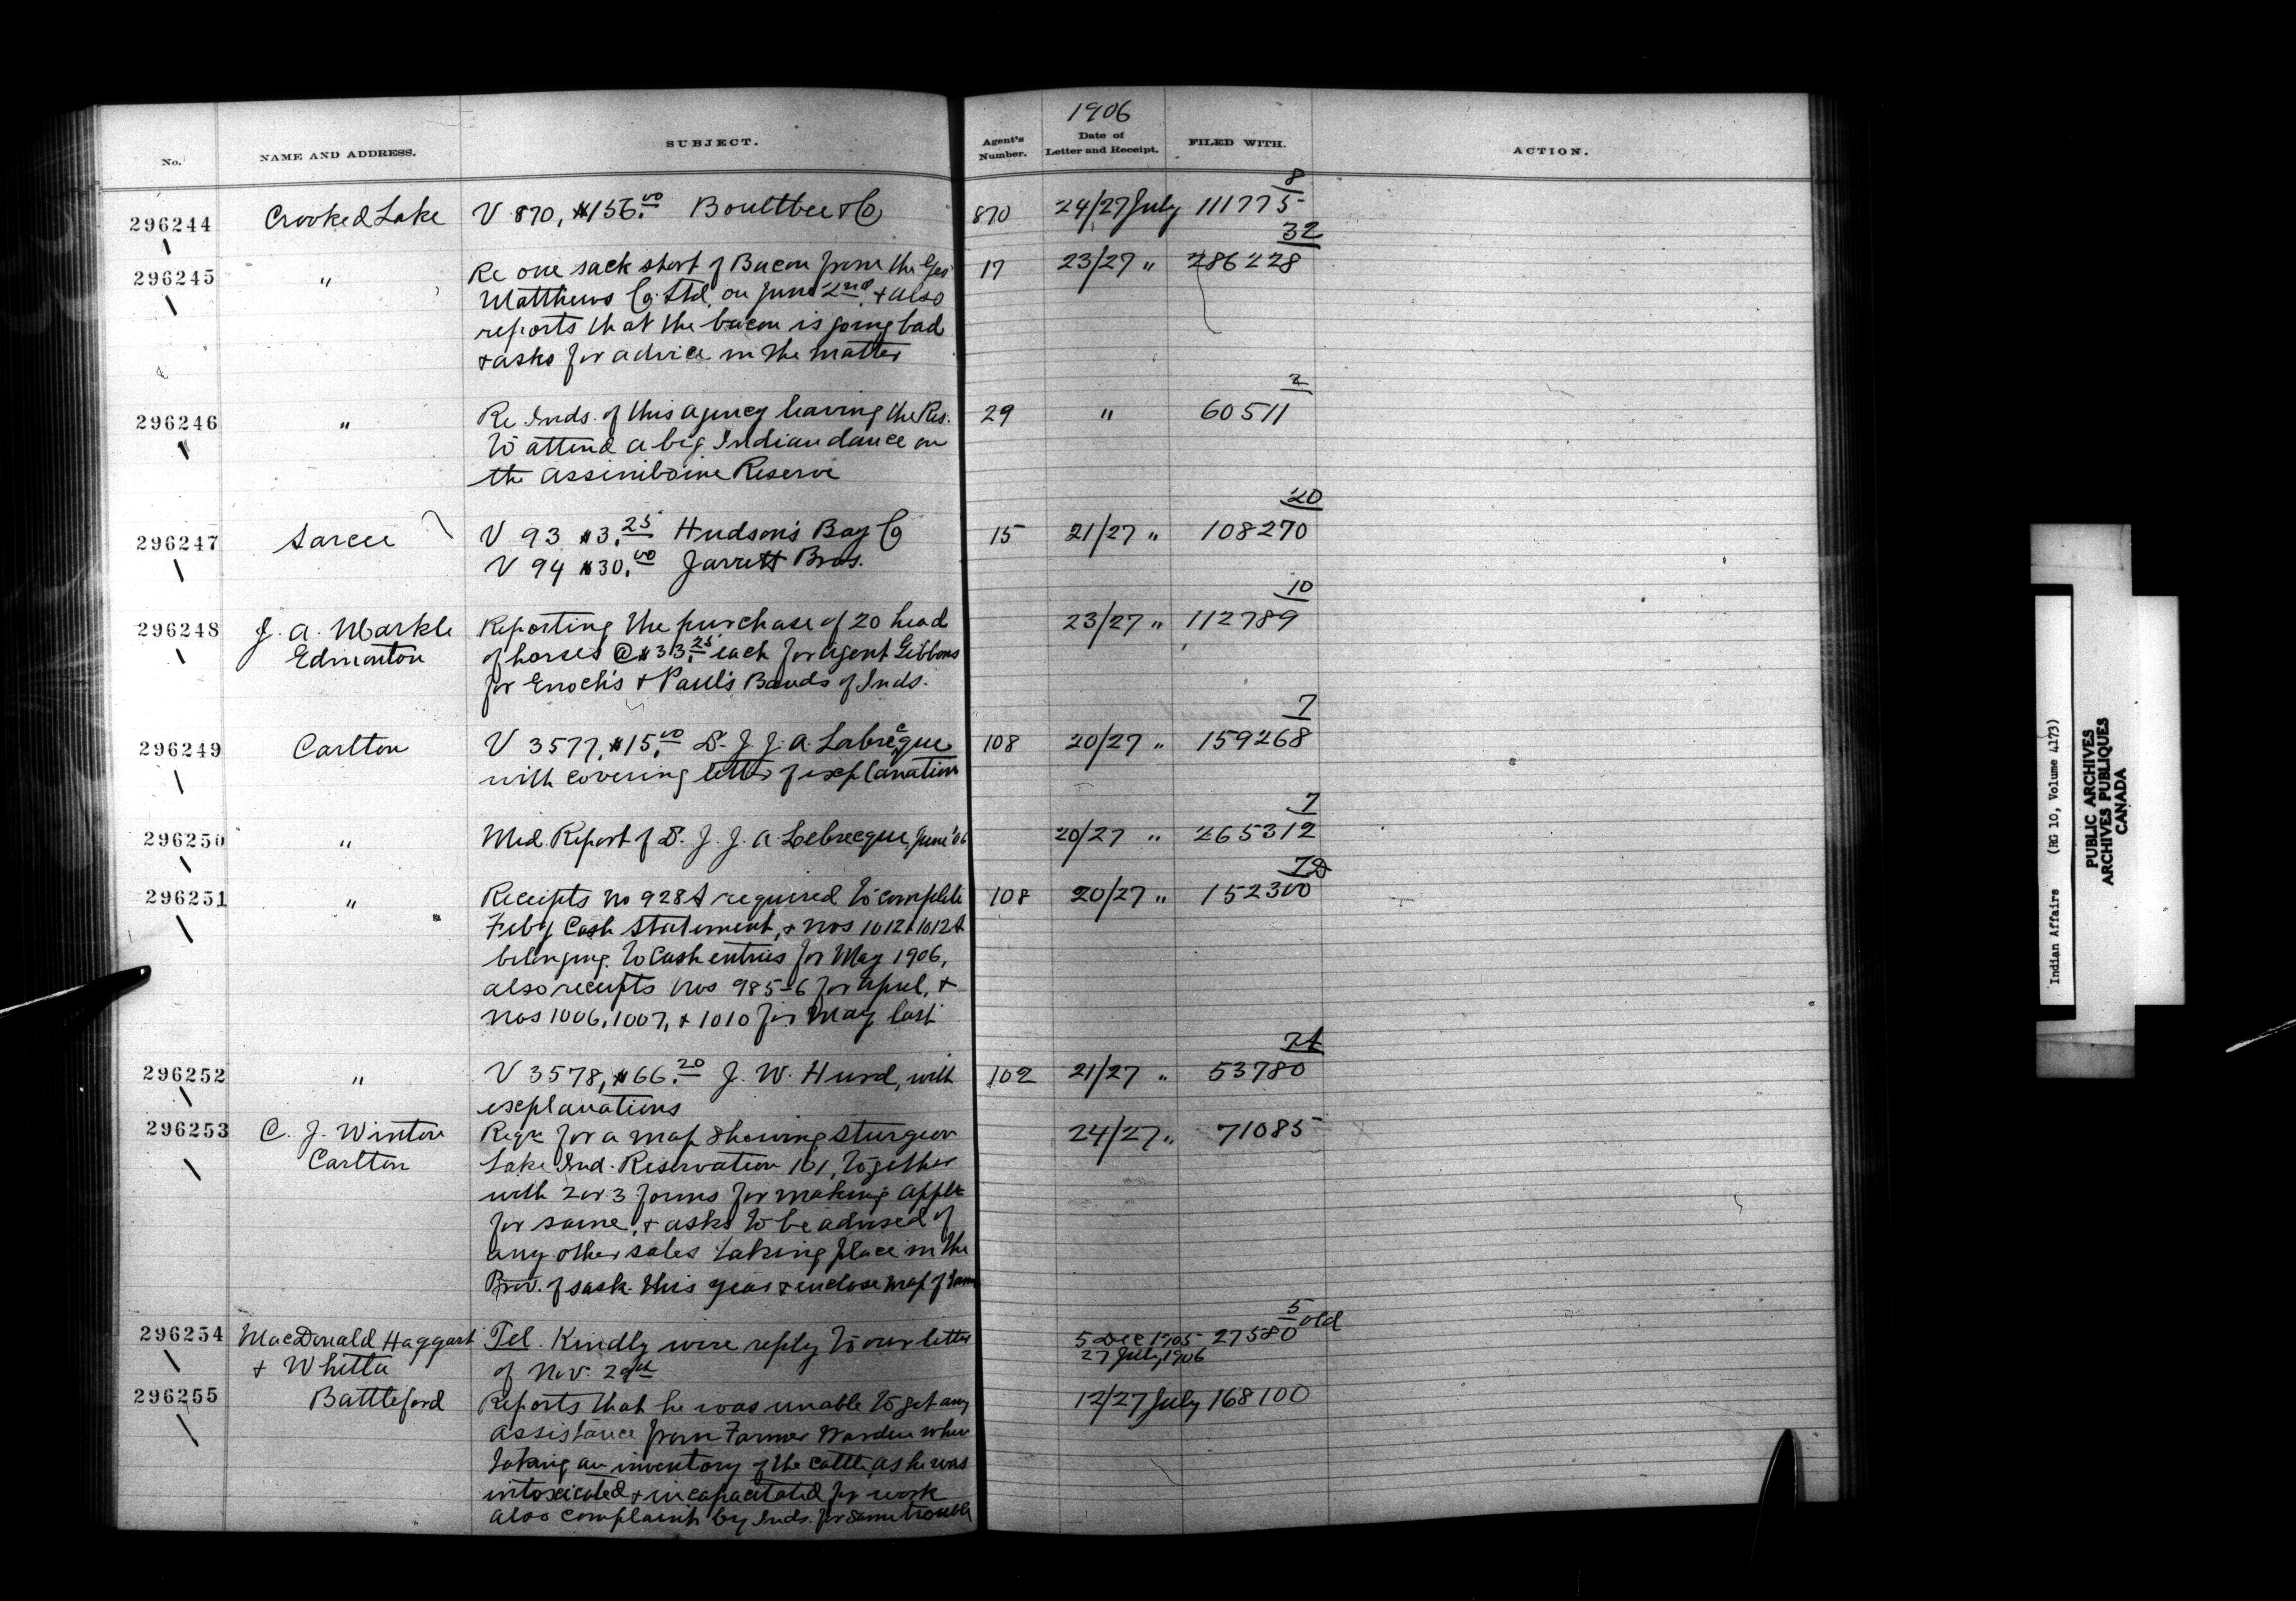 1906
No.
NAME AND ADDRESS.
SUBJECT.
Agent's Number.
Date of Letter and Receipt.
FILED WITH.
ACTION.
8
296244 Crooked Lake V 870, $156.00 Boultbee & Co 870 24/27 July 111775
32
296245 " Re one sack short of Bacon from the Geo 17 23/27 " 286228
Matthews Co. Ltd. on June 2nd, & also
reports that the bacon is going bad
& asks for advice in the matter
2
296246 " Re Inds. of this agency leaving the Res. 29 " 60511
to attend a big Indian dance on
the Assiniboine Reserve
20
296247 Sarcee V 93 $3.25 Hudson's Bay Co 15 21/27 " 108270
V 94 $30.00 Jarrett Bros.
10
296248 J. A. Markle Reporting the purchase of 20 head 23/27 " 112789
Edmonton of horses @ $33.25 each for Agent Gibbons
for Enoch's & Paul's Bands of Inds.
7
296249 Carlton V 3577, $15.00 Dr. J. J. A. Labrecque 108 20/27 " 159268
with covering letter of explanation
7
296250 " Med. Report of Dr. J. J. A. Lebrecque, June '06 20/27 " 265312
296251 " Receipts No 928A required to complete 108 20/27 " 152300
Feby Cash Statement, & nos 1012 & 1012A
belonging to Cash entries for May 1906,
also receipts nos 985-6 for April, &
nos 1006, 1007, & 1010 for May last
7A
296252 " V 3578, $66.20 J. W. Hurd, with 102 21/27 " 53780
explanations
296253 C. J. Winton Reqn for a map showing Sturgeon 24/27 " 71085
Carlton Lake Ind. Reservation 101, together
with 2 or 3 forms for making appln
for same, & asks to be advised of
any other sales taking place in the
Prov. of Sask. this year & enclose map of same
5
296254 MacDonald Haggart Tel. Kindly wire reply to our letter 5 Dec 1905 27580 old
& Whitla of Nov. 29th 27 July, 1906
296255 Battleford Reports that he was unable to get any 12/27 July 168100
assistance from Farmer Warden when
taking an inventory of the cattle, as he was
intoxicated & incapacitated for work
also complaint by Inds. for same trouble
Indian Affairs (RG 10, Volume 4173)
PUBLIC ARCHIVES
ARCHIVES PUBLIQUES
CANADA